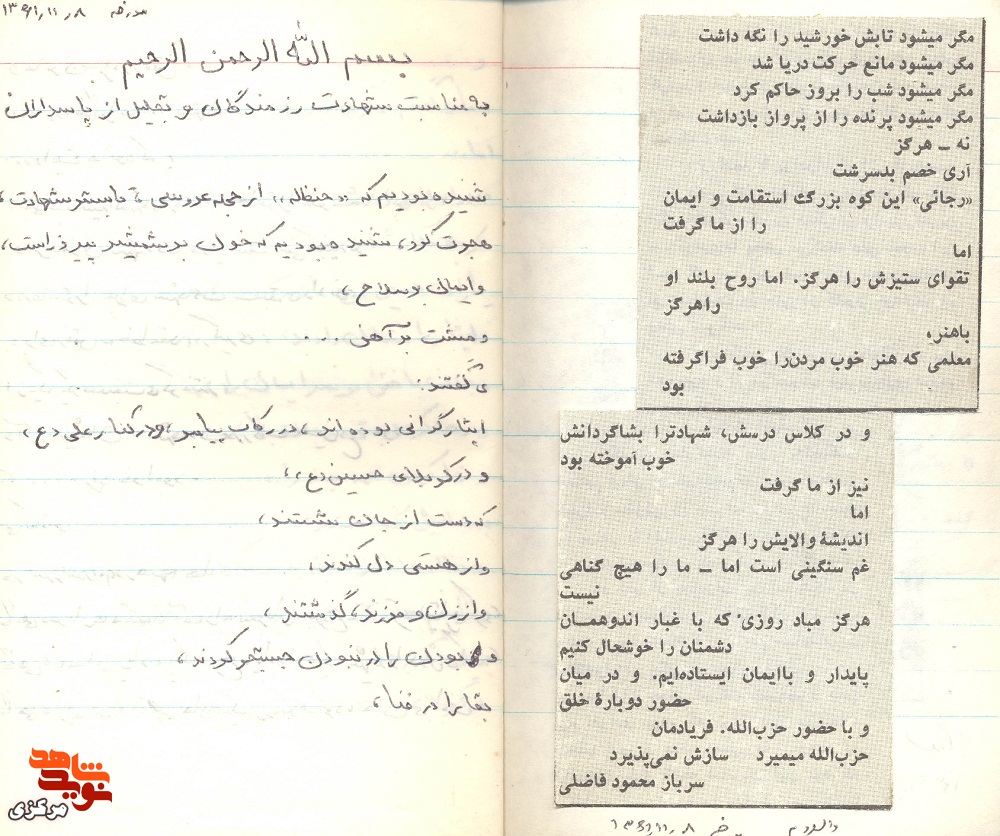 مورخه ۱۳۶۱٫۱۱٫۸
بسم الله الرحمن الرحیم
به مناسبت شهادت رزمندگان و تجلیل از پاسداران
شنیده بودیم که «حنظله» از حجله عروسی، تا بستر شهادت،
هجرت کرد، شنیده بودیم که خون بر شمشیر پیروز است،
و ایمان بر سلاح،
و مشت بر آهن ...
می گفتند:
ایثارگرانی بوده اند، در رکاب پیامبر، و در کنار علی (ع)،
و در کربلای حسین (ع)،
که دست از جان شستند،
و از هستی دل کندند،
و از زن و فرزند، گذشتند،
و بودن را در نبودن جستجو کردند،
بقا را در فنا،
مگر میشود تابش خورشید را نگه داشت
مگر میشود مانع حرکت دریا شد
مگر میشود شب را بروز حاکم کرد
مگر میشود پرنده را از پرواز بازداشت
نه ــ هرگز
آری خصم بدسرشت
«رجائی» این کوه بزرگ استقامت و ایمان
را از ما گرفت
اما
تقوای ستیزش را هرگز. اما روح بلند او
راهرگز
باهنر،
معلمی که هنر خوب مردن‌را خوب فراگرفته
بود
و در کلاس درسش، شهادترا بشاگردانش
خوب آموخته بود
نیز از ما گرفت
اما
اندیشهٔ والایش را هرگز
غم سنگینی است اما ــ ما را هیچ گناهی
نیست
هرگز مباد روزی که با غبار اندوهمان
دشمنان را خوشحال کنیم
پایدار و باایمان ایستاده‌ایم. و در میان
حضور دوبارهٔ خلق
و با حضور حزب‌الله. فریادمان
حزب‌الله میمیرد سازش نمی‌پذیرد
سرباز محمود فاضلی
۱۳۶۱٫۱۱٫۸
نوید شاهد
مرکزی